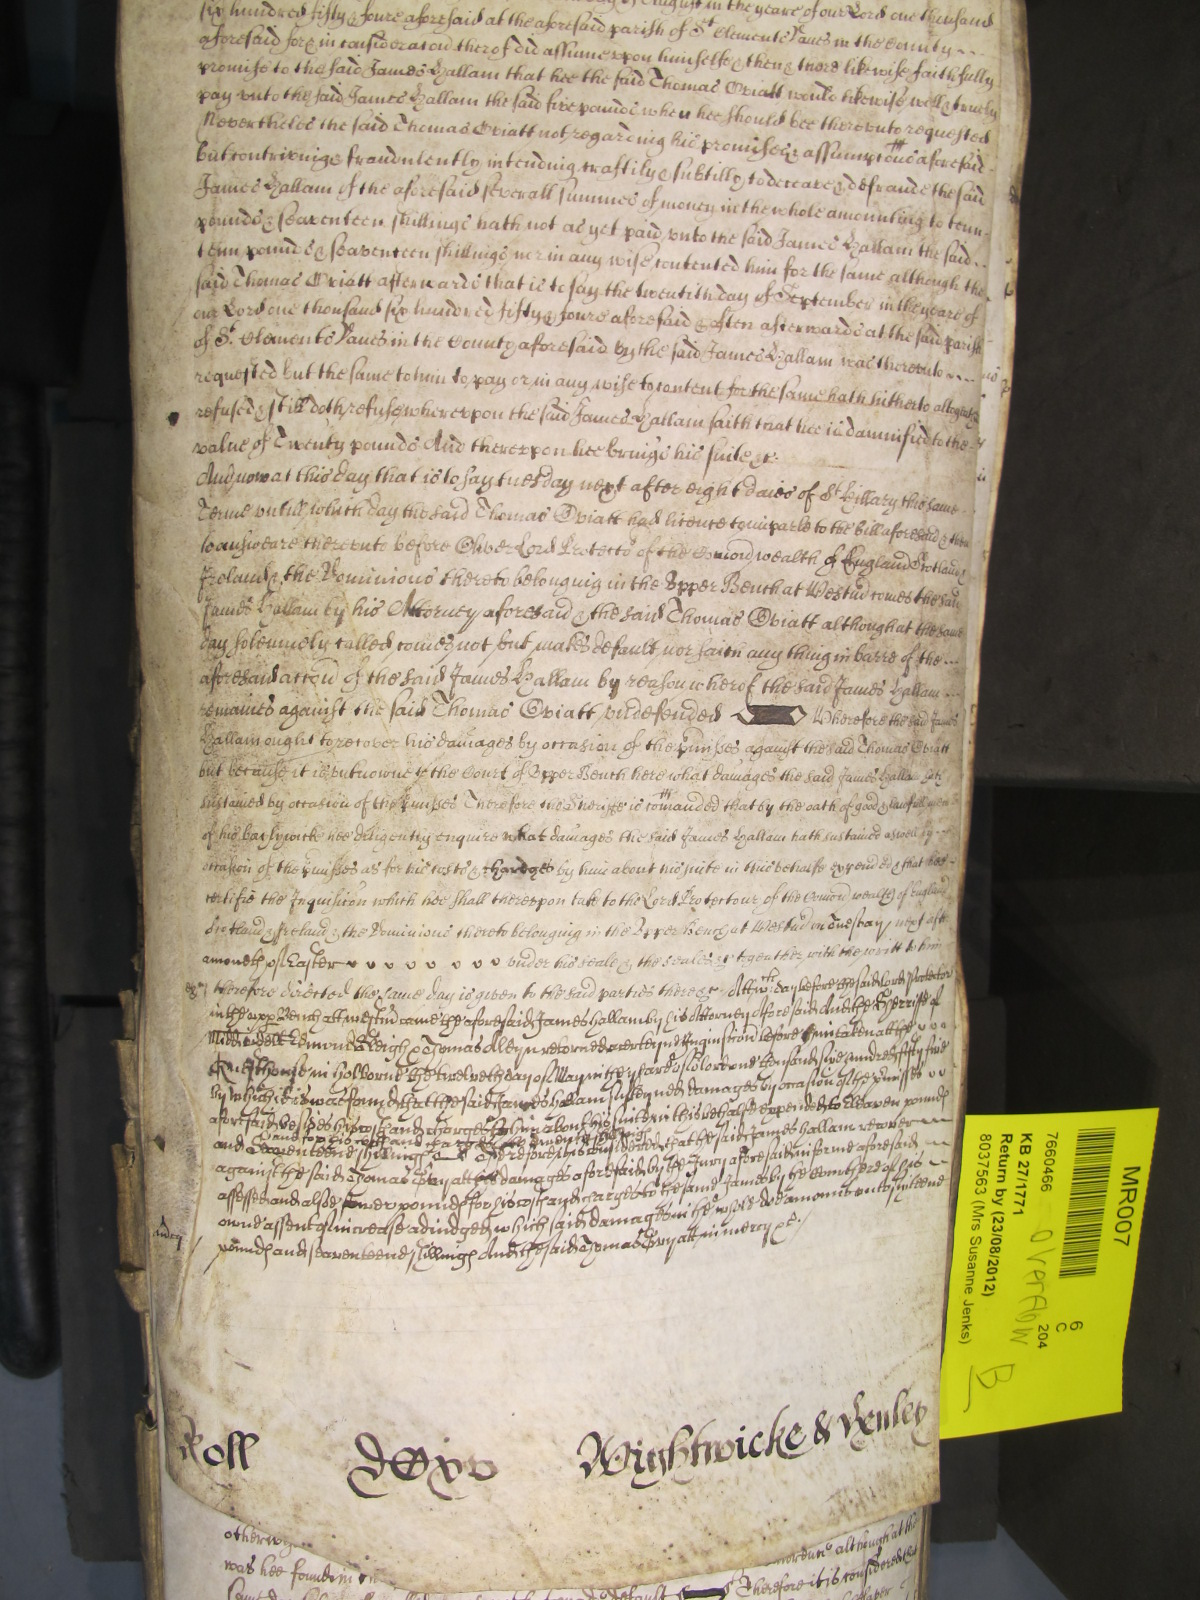 of August in the yeare of our Lord one thousand
six hundred fifty & foure aforesaid at the aforesaid parish of St Clements Danes in the County
aforesaid fore in consideracion therof did assume vpon himselfe & then & there likewise faithfully
promise to the said James Hallam that hee the said Thomas Oviatt would likewise well & truely
pay vnto the said James Hallam the said five pounds when hee should bee therevnto requested
Neverthelesse the said Thomas Oviatt not regarding his promises & assumptions aforesaid
but contriving & fraudulently intending craftily & subtilly to deceave & defraude the said
James Hallam of the aforesaid severall summes of money in the whole amounting to tenn
pounds & seaventeen shillings hath not as yet paid vnto the said James Hallam the said
tenn pounds & seaventeen shillings nor in any wise contented him for the same although the
said Thomas Oviatt afterwards that is to say the twentith day of September in the yeare of
our Lord one thousand six hundred fifty & foure aforesaid & often afterwards at the said parish
of St Clements Danes in the County aforesaid by the said James Hallam was therevnto
requested but the same to him to pay or in any wise to content for the same hath hitherto altogether
refused & still doth refuse wherevpon the said James Hallam saith that hee is damnified to the
value of Twenty pounds And therevpon hee brings his suite &c
And now at this day that is to say tuesday next after eight daies of St Hillary this same
Terme vntill which day the said Thomas Oviatt had licence to imparle to the bill aforesaid & then
to answeare therevnto before Oliver Lord Protector of the Comonwealth of England Scotland &
Ireland & the Dominions thereto belonging in the Vpper Bench at Westm comes the said
James Hallam by his Attorney aforesaid & the said Thomas Oviatt although at the same
day solemnely called comes not but makes default nor saith any thing in barre of the
aforesaid accion of the said James Hallam by reason wherof the said James Hallam
remaines against the said Thomas Oviatt vndefended Wherefore the said James
Hallam ought to recover his damages by occasion of the pmisses against the said Thomas Oviatt
but because it is vnknowne to the Court of Vpper Bench here what damages the said James Hallam hath
sustained by occasion of the pmisses Therefore the Sherriffe is comanded that by the oath of good & lawfull men
of his baylywicke hee diligently enquire what damages the said James Hallam hath sustained aswell by
occasion of the pmisses as for his costs & chardges by him about his suite in this behalfe expended & that hee
certifie the Inquisicion which hee shall therevpon take to the Lord Protectour of the Comonwealth of England
Scotland & Ireland & the Dominions thereto belonging in the Vpper Bench at Westm on Tuesday next after
a moneth of Easter under his seale & the seales &c togeather with the writt to him
therefore directed the same day is given to the said parties there &c Att which day before the said Lord Protector
in the vpper Bench att westm came the aforesaid James Hallam by his Attorney aforesaid And the Sherriffe of
Midd Edmond Sleigh & Thomas Alleyn retorned a certeyne Inquisicion before him taken att the
house in Holborne the twelveth day of May in the yeare of our Lord one thousand six hundred fifty five
by which it was found that the said James Hallam susteyned damages by occasion of the pmisses
aforesaid besides his costs and charges by him about his suite in this behalfe expended to eleaven pounds
and for his costs and charges
and seaventeene shillings Therefore it is considered that the said James Hallam recover
against the said Thomas Ovyatt his damages aforesaid by the Jury aforesaid in forme aforesaid
assessed and alsoe fower pounds for his costs and charges to the same James by the Court here of his
owne assent of increase adiudged which said damages in the whole doe amount vnto fifteene
pounds and seaventeene shillings And the said Thomas Ovyatt in mercy &c
mercy
Roll
Wightwicke & Henley
was hee found in
although at the
Therefore it is considered that
MR007
6
C
204
7660466
Overflow
KB 27/1771
Return by (23/08/2012)
8037563 (Mrs Susanne Jenks)
B